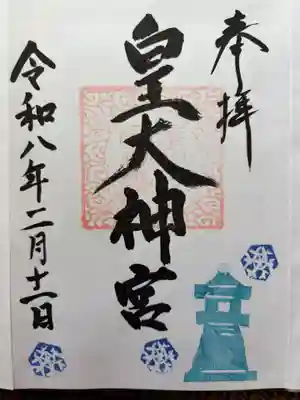 奉拝
皇大神宮
令和八年二月十一日